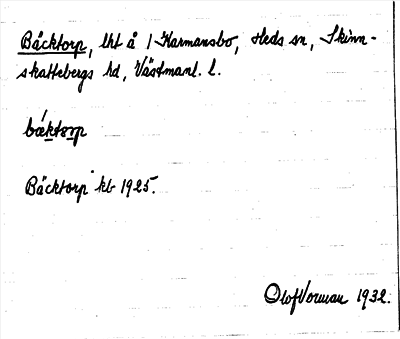 Bäcktorp, lht å 1 Karmansbo, Heds sn, Skinn-
skattebergs hd, Västmanl. l.
bäktorp
Bäcktorp kb 1925.
Olof Vorman 1932.